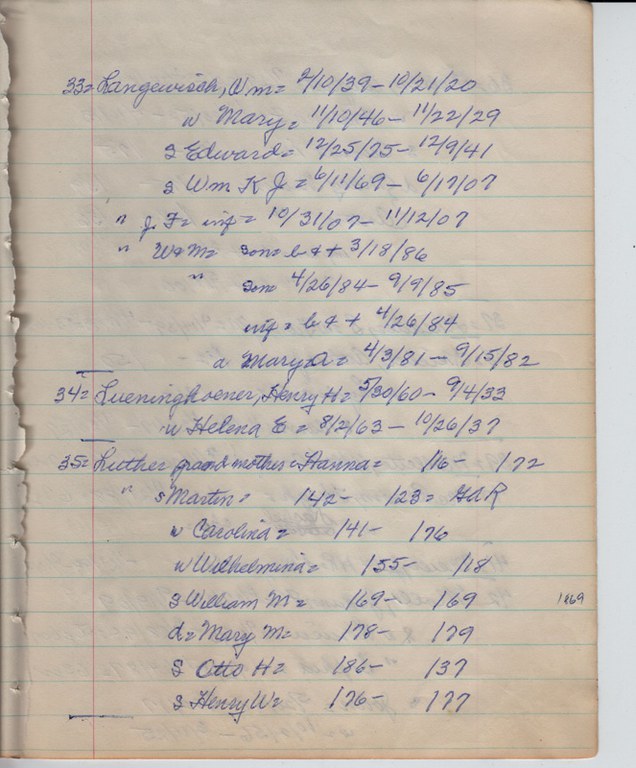 33= Langewisch, Wm= 2/10/39 - 10/21/20
w Mary = 11/10/46 - 11/22/29
s Edward = 12/25/75 - 12/9/41
s Wm K J = 6/11/69 - 6/17/07
" J. F= inf = 10/31/07 - 11/12/07
" W & M= son= b & + 3/18/86
" son 4/26/84 - 9/9/85
inf = b & + 4/26/84
d Mary A = 4/3/81 - 9/15/82
34= Lueninghoener, Henry H= 5/30/60 - 9/4/33
w Helena E = 8/2/63 - 10/26/37
35= Luther grandmother Hanna = /16 - /72
" s Martin = /42 - /23 = GAR
w Carolina = /41 - /76
w Wilhelmina = /55 - /18
s William M = /69 - /69 1869
d= Mary M= /78 - /79
s Otto H= /86 - /37
s Henry W= /76 - /77